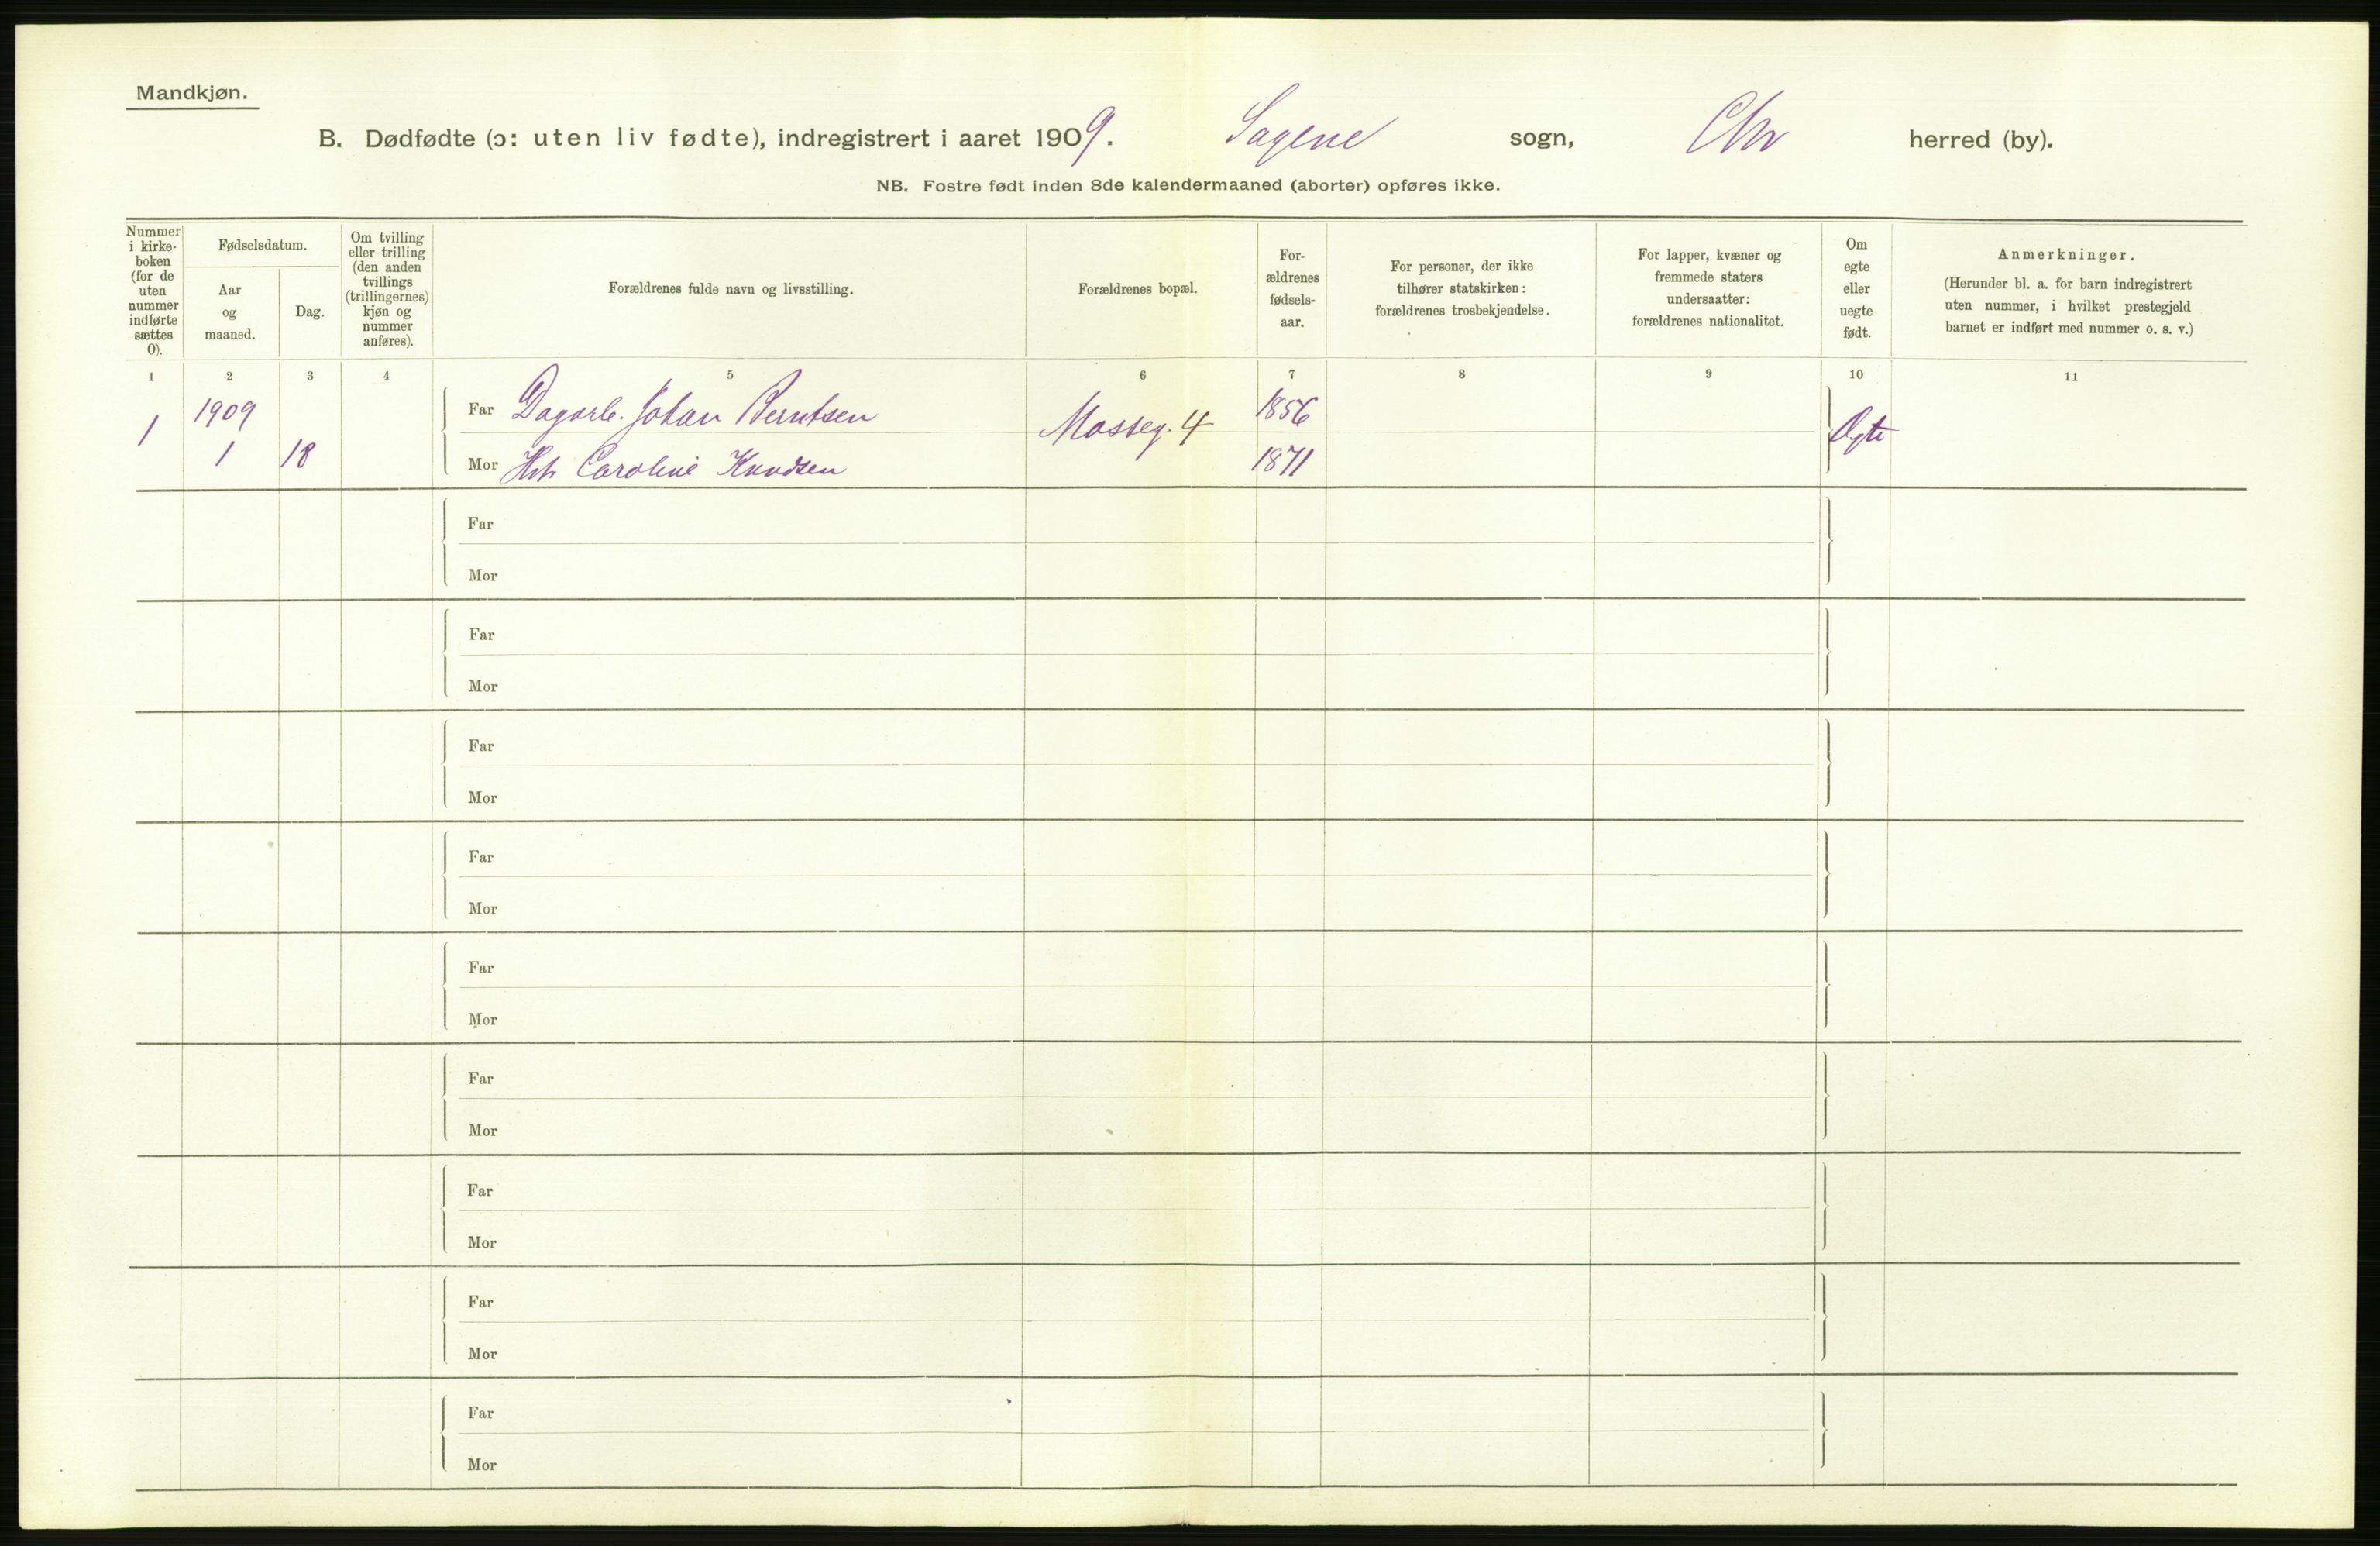 Mandkjøn.
B. Dødfødte (ɔ: uten liv fødte), indregistrert i aaret 1909. Sagene sogn, Chr herred (by).
NB. Fostre født inden 8de kalendermaaned (aborter) opføres ikke.
Nummer
i kirke-
boken
(for de
uten
nummer
indførte
sættes
0).
Fødselsdatum.
Aar
og
maaned.
Dag.
Om tvilling
eller trilling
(den anden
tvillings
(trillingernes)
kjøn og
nummer
anføres).
Forældrenes fulde navn og livsstilling.
Forældrenes bopæl.
For-
ældrenes
fødsels-
aar.
For personer, der ikke
tilhører statskirken:
forældrenes trosbekjendelse.
For lapper, kvæner og
fremmede staters
undersaatter:
forældrenes nationalitet.
Om
egte
eller
uegte
født.
Anmerkninger.
(Herunder bl. a. for barn indregistrert
uten nummer, i hvilket prestegjeld
barnet er indført med nummer o. s. v.)
1 2 3 4 5 6 7 8 9 10 11
1 1909 Far Dagarb. Johan Berntsen Mosseg. 4 1856 Ægte
1 18 Mor Hst. Caroline Knudsen 1871
Far
Mor
Far
Mor
Far
Mor
Far
Mor
Far
Mor
Far
Mor
Far
Mor
Far
Mor
Far
Mor